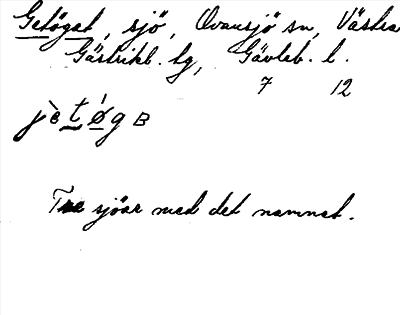 Getögat, sjö, Ovansjö sn, Västra
Gästrikl. tg, Gävleb. l.
7 12
jètǿg B
Tre sjöar med det namnet.